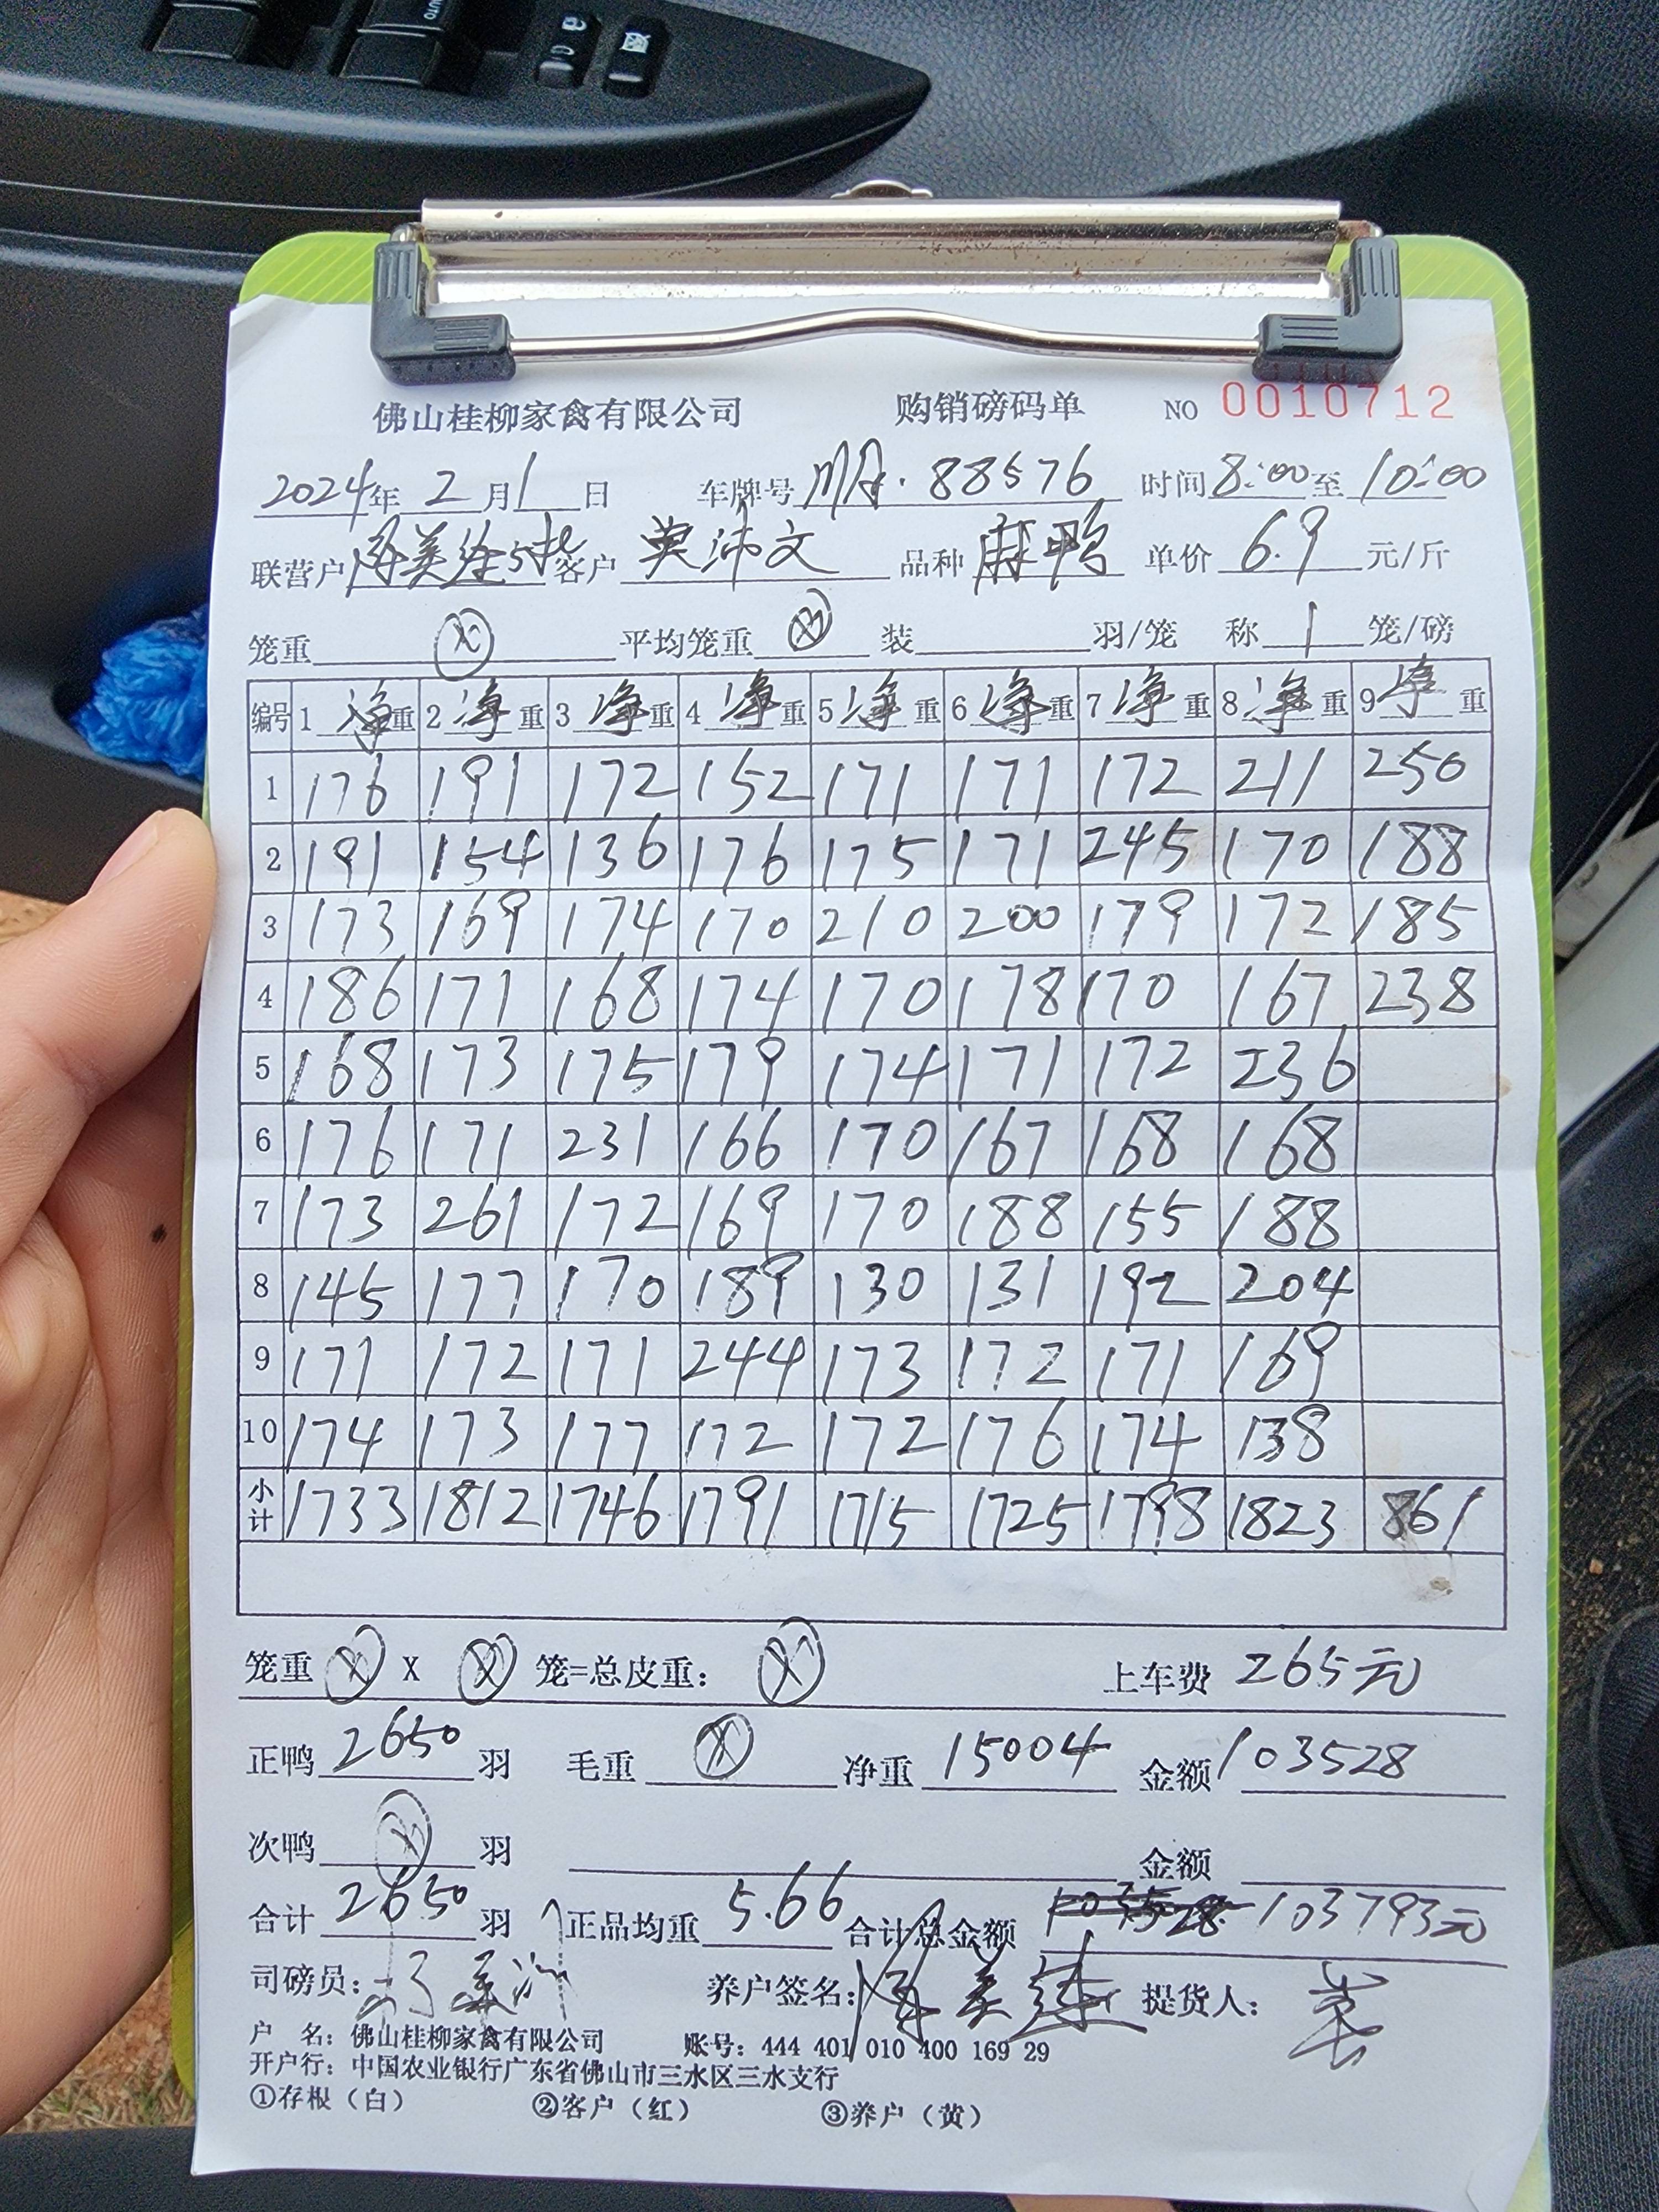 AUTO
佛山桂柳家禽有限公司 购销磅码单 NO 0010712
2024年 2月1日 车牌号 88576 时间 8:00至10:00
联营户 客户 品种 麻鸭 单价 6.9 元/斤
笼重 ⓧ 平均笼重 ⓧ 装 羽/笼 称 1 笼/磅
编号 1 净重 2 净重 3 净重 4 净重 5 净重 6 净重 7 净重 8 净重 9 净重
1 176 191 172 152 171 171 172 211 250
2 191 154 136 176 175 171 245 170 188
3 173 169 174 170 210 200 179 172 185
4 186 171 168 174 170 178 170 167 238
5 168 173 175 179 174 171 172 236
6 176 171 231 166 170 167 168 168
7 173 261 172 169 170 188 155 188
8 145 177 170 189 130 131 192 204
9 171 172 171 244 173 172 171 169
10 174 173 177 172 172 176 174 138
小计 1733 1812 1746 1791 1715 1725 1798 1823 861
笼重 ⓧ X ⓧ 笼=总皮重: ⓧ 上车费 265元
正鸭 2650 羽 毛重 ⓧ 净重 15004 金额 103528
次鸭 ⓧ 羽 金额
合计 2650 羽 正品均重 5.66 合计总金额 103528 103793元
司磅员: 养户签名: 提货人:
户 名: 佛山桂柳家禽有限公司 账号: 444 401 010 400 169 29
开户行: 中国农业银行广东省佛山市三水区三水支行
①存根（白） ②客户（红） ③养户（黄）